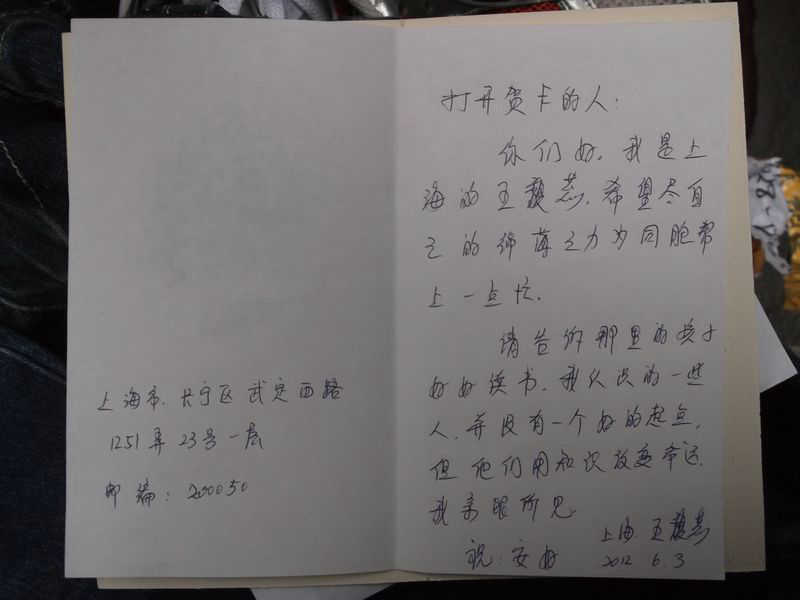 上海市. 长宁区 武定西路
1251弄 23号一层
邮编: 200050
打开贺卡的人:
你们好. 我是上
海的王颖 希望尽自
己的绵薄之力为同胞帮
上一点忙.
请告你那里的孩子
好好读书. 我认识的一些
人, 并没有一个好的起点.
但他们用知识改变命运.
我亲眼所见.
祝: 安好
上海 王颖
2012 6.3